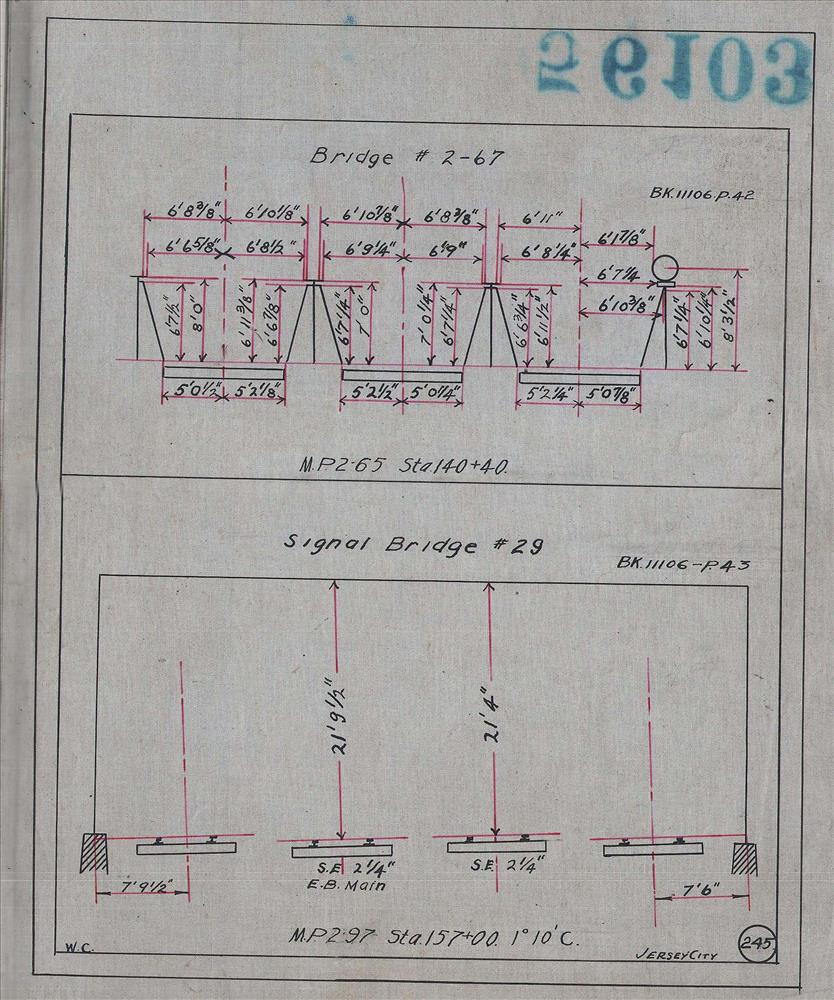 56103
Bridge # 2-67
BK.11106.P.42
6'8⅜" 6'10⅛" 6'10⅞" 6'8⅜" 6'11" 6'1⅞"
6'6⅝" 6'8½" 6'9¼" 6'9" 6'8¼" 6'7¼
6'10⅜"
6'7½" 8'0" 6'11⅜" 6'6⅞" 6'7¼" 7'0" 7'0¼" 6'7¼" 6'6¾" 6'11½" 6'7¼" 6'10¼" 8'3½"
5'0½" 5'2⅛" 5'2½" 5'0¼" 5'2¼" 5'0⅞"
M.P.2.65 Sta.140+40.
Signal Bridge #29
BK.11106-P.43
21'9½" 21'4"
S.E. 2¼" S.E. 2¼"
E.B. Main
7'9½" 7'6"
M.P.2.97 Sta.157+00. 1°10'C.
W.C. JERSEY CITY 245